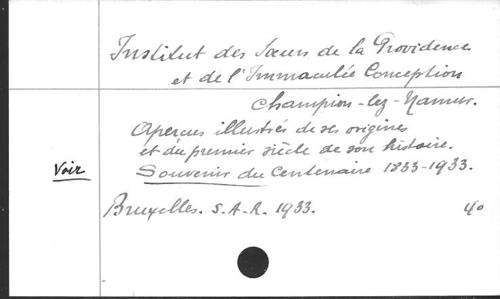 Institut des Sœurs de la Providence
et de l'Immaculée Conception
Champion-lez-Namur.
Aperçus illustrés de ses origines
et du premier siècle de son histoire.
Voir Souvenir du Centenaire 1833-1933.
Bruxelles. S.A.R. 1933. 4o